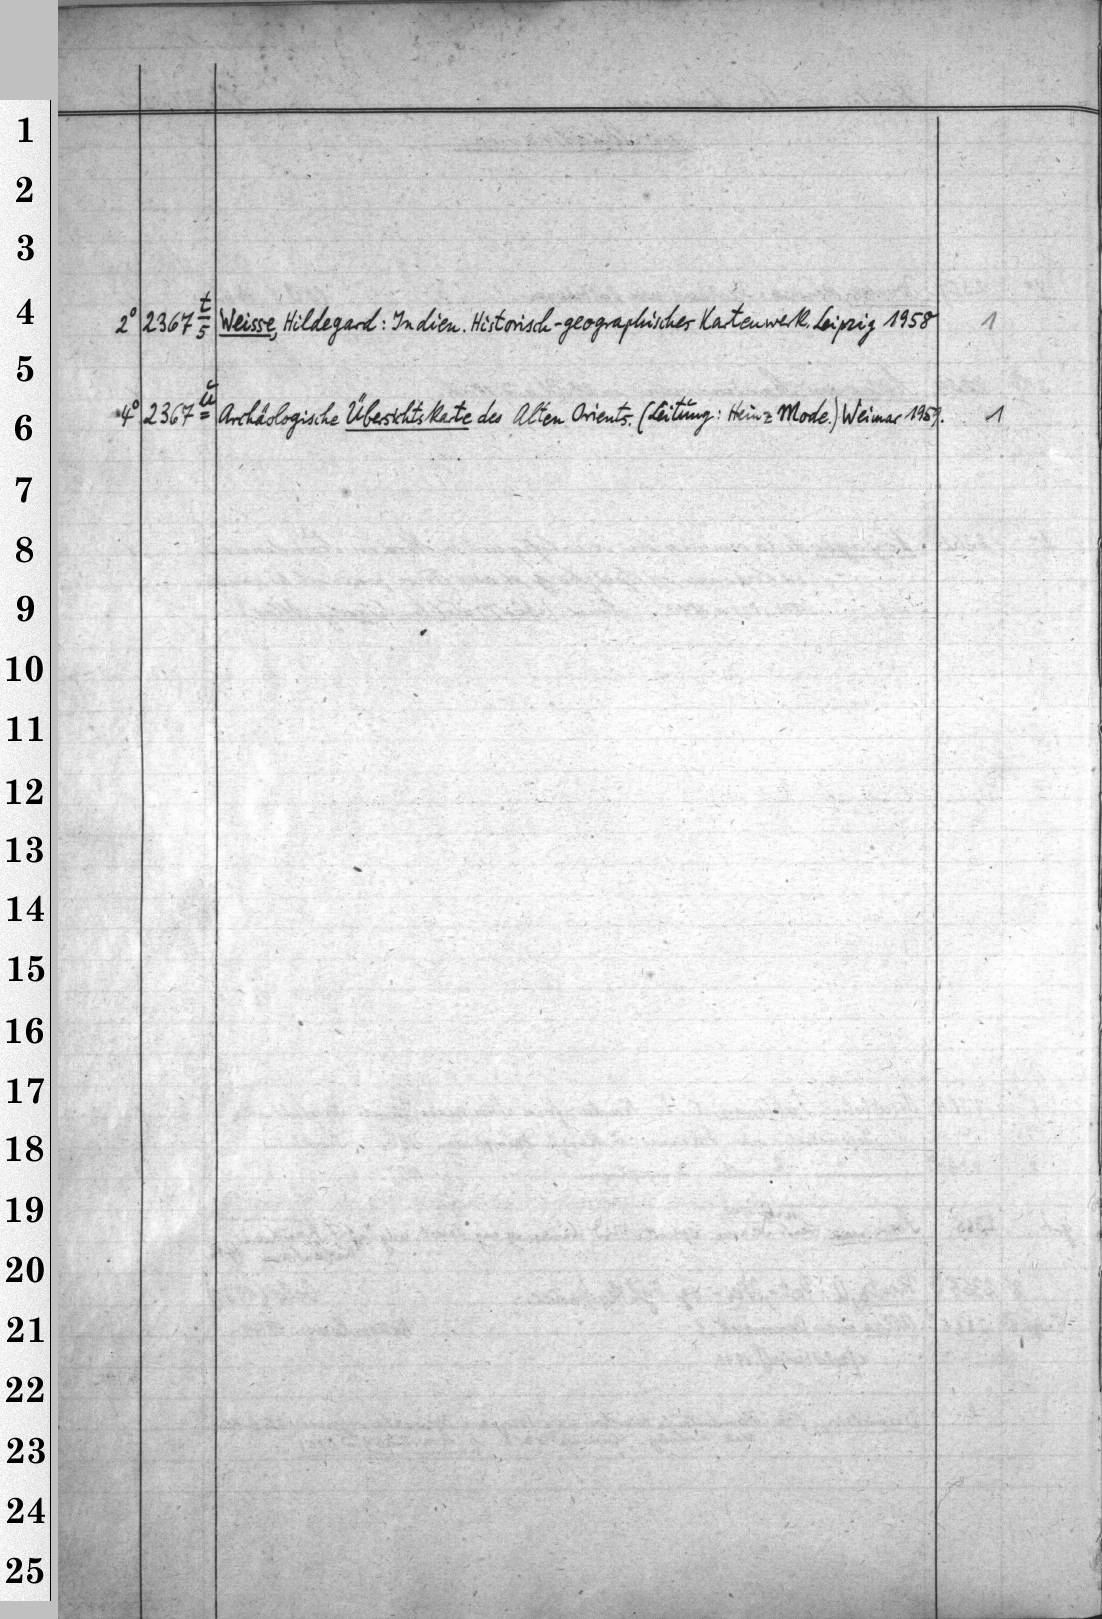 1
2
3
4
2° 2367 t/5 Weisse, Hildegard: Indien. Historisch-geographisches Kartenwerk. Leipzig 1958 1
5
4° 2367 ü Archäologische Übersichtskarte des Alten Orients. (Leitung: Heinz Mode.) Weimar 1959. 1
6
7
8
9
10
11
12
13
14
15
16
17
18
19
20
21
22
23
24
25